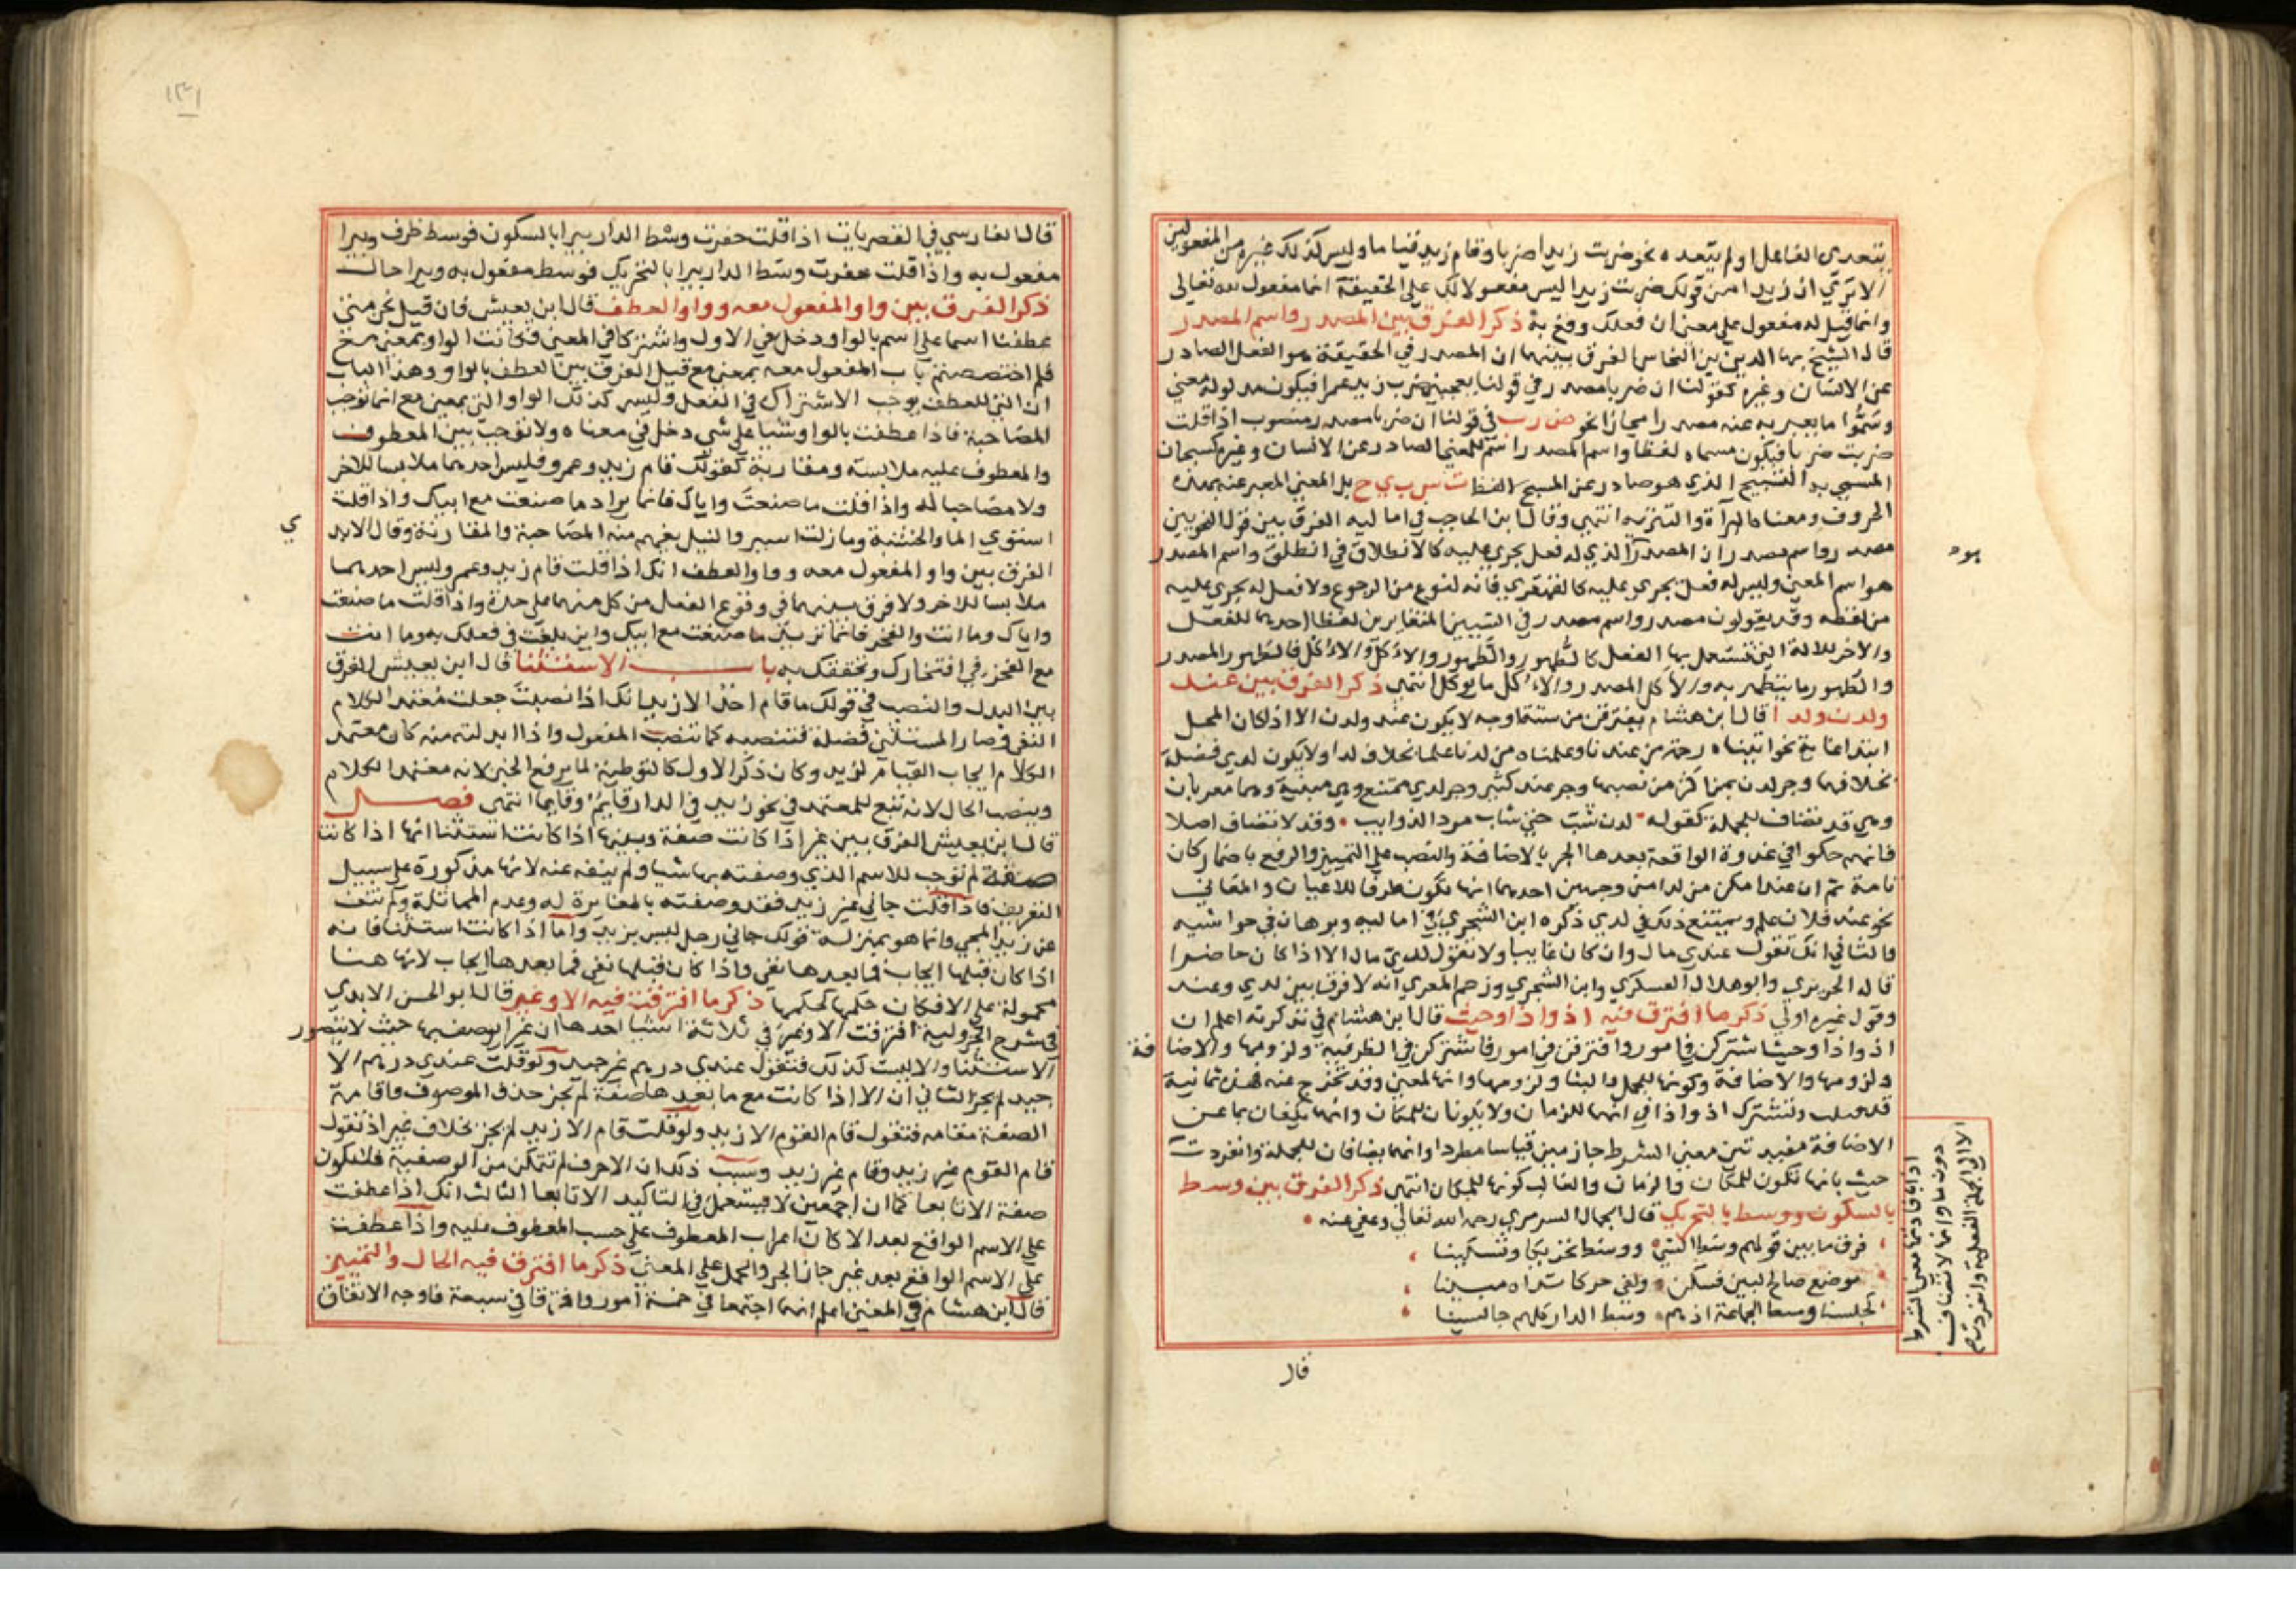 يتعدى الفاعل او لم يتعده نحو ضربت زيدا ضربا وقام زيد قياما وليس كذلك غيره من المفعولين
الا ترى ان زيدا من قولك ضربت زيدا ليس مفعولا لك على الحقيقة انما مفعول لله تعالى
وانما قيل له مفعول على معنى ان فعلك وقع به ذكر الفرق بين المصدر واسم المصدر
قال الشيخ بها الدين بن النحاس الفرق بينهما ان المصدر في الحقيقة هو الفعل الصادر
عن الانسان وغيره كقولنا ان ضربا مصدر في قولنا يعجبني ضرب زيد عمرا فيكون مدلوله معنى
وسموا ما يعبر به عنه مصدرا مجازا نحو ض ر ب في قولنا ان ضربا مصدر منصوب اذا قلت
ضربت ضربا فيكون مسماه لفظا واسم المصدر اسم للمعنى الصادر عن الانسان وغيره كسبحان
المسمى به التسبيح الذي هو صادر عن المسبح لا لفظ ت س ب ي ح بل المعنى المعبر عنه بهذه
الحروف ومعناه البرآة والتنزيه انتهى وقال ابن الحاجب في اماليه الفرق بين قول النحويين
مصدر واسم مصدر ان المصدر الذي له فعل يجري عليه كالانطلاق في انطلق واسم المصدر
هو اسم المعنى وليس له فعل يجري عليه كالقهقرى فانه لنوع من الرجوع ولا فعل له يجري عليه
من لفظه وقد يقولون مصدر واسم مصدر في الشيين المتغايرين لفظا احدهما للفعل
والاخر للالة التي تستعمل بها الفعل كالطهور والطهور والاكل والاكل فالطهور المصدر
والطهور ما يتطهر به والاكل المصدر والاكل ما يوكل انتهى ذكر الفرق بين عند
ولدن ولدا قال ابن هشام يفترقن من ستة اوجه لا يكون عند ولدن الا اذا كان المحل
ابتدا غاية نحو اتيناه رحمة من عندنا وعلمناه من لدنا علما بخلاف لدا ولا يكون لدى فضلة
بخلافهما وجر لدن بمن اكثر من نصبها وجر عند كثير وجر لدى ممتنع وهي مبنية وهما معربان
وهي قد تضاف للجملة كقوله لدن شب حتى شاب سود الذوايب وقد لا تضاف اصلا
فانهم حكوا في غدوة الواقعة بعدها الجر بالاضافة والنصب على التمييز والرفع باضمار كان
تامة ثم ان عند امكن من لدا من وجهين احدهما انها تكون ظرفا للاعيان والمعاني
نحو عند فلان علم ويمتنع ذلك في لدي ذكره ابن الشجري في اماليه ومبرمان في حواشيه
والثاني انك تقول عندي مال وان كان غايبا ولا تقول لدي مال الا اذا كان حاضرا
قاله الحريري وابو هلال العسكري وابن الشجري وزعم المعري انه لا فرق بين لدي وعند
وقول غيره اولى ذكر ما افترق فيه اذ واذا وحيث قال ابن هشام في تذكرته اعلم ان
اذ واذا وحيث اشتركن في امور وافترقن في امور فاشتركن في الظرفية ولزومها والاضافة
ولزومها والاضافة وكونها للجمل والبنا ولزومها وانها لمعنى وقد تخرج عنه فهذه ثمانية
قد قيلت وتشترك اذ واذا في انهما للزمان ولا يكونان للمكان وانهما يكفان بما عن
الاضافة مفيدتين معنى الشرط جازمين قياسا مطردا وانهما يضافان للجملة وانفردت
حيث بانها تكون للمكان والزمان والغالب كونها للمكان انتهى ذكر الفرق بين وسط
بالسكون ووسط بالتحريك قال الجمال السرمري رحمه الله تعالى وعفى عنه
فرق ما بين قولهم وسط الشئ ووسط تحريكا وتسكينا
موضع صالح لبين فسكن ولفي حركا تراه مبينا
كجلسنا وسط الجماعة اذ هم وسط الدار كلهم جالسينا
هود
اذا بافادتها معنى الشرط
دون ما وانها لا تضاف
الا الى الجملة الفعلية وانفردت
قال
١٣١
قال الفارسي في القصريات اذا قلت حفرت وسط الدار بيرا بالسكون فوسط ظرف وبيرا
مفعول به واذا قلت حفرت وسط الدار بيرا بالتحريك فوسط مفعول به وبيرا حال
ذكر الفرق بين واو المفعول معه وواو العطف قال ابن يعيش فان قيل نحن متى
عطفنا اسما على اسم بالواو دخل في الاول واشتركا في المعنى فكانت الواو بمعنى مع
فلم اختصصتم باب المفعول معه بمعنى مع قيل الفرق بين العطف بالواو وهذا الباب
ان التي للعطف يوجب الاشتراك في الفعل وليس كذلك الواو التي بمعنى مع انما توجب
المصاحبة فاذا عطفت بالواو شيا على شي دخل في معناه ولا توجب بين المعطوف
والمعطوف عليه ملابسة ومقاربة كقولك قام زيد وعمرو فليس احدهما ملابسا للاخر
ولا مصاحبا له واذا قلت ما صنعت واياك فانما يراد ما صنعت مع ابيك واذا قلت
استوى الما والخشبة وما زلت اسير والنيل يفهم منه المصاحبة والمقارنة وقال الابدي
الفرق بين واو المفعول معه وواو العطف انك اذا قلت قام زيد وعمرو ليس احدهما
ملابسا للاخر ولا فرق بينهما في وقوع الفعل من كل منهما على حدة واذا قلت ما صنعت
واباك وما انت والفخر فانما تريد ما صنعت مع ابيك واين بلغت في فعلك به وما انت
مع الفخر في افتخارك وتحققك به باب الاستثنا قال ابن يعيش الفرق
بين البدل والنصب في قولك ما قام احد الا زيد انك اذا نصبت جعلت معتمد الكلام
النفي وصار المستثنى فضلة فتنصبه كما تنصب المفعول واذا ابدلته منه كان معتمد
الكلام ايجاب القيام لزيد وكان ذكر الاول كالتوطية لما يرفع الخبر لانه معتمد الكلام
وينصب الحال لانه تبع للمعتمد في نحو زيد في الدار قايم وقايما انتهى فصل
قال ابن يعيش الفرق بين غير اذا كانت صفة وبينها اذا كانت استثنا انها اذا كانت
صفة لم توجب للاسم الذي وصفته بها شيا ولم ينفه عنه لانها مذكورة على سبيل
التعريف فاذا قلت جاني غير زيد فقد وصفته بالمغايرة له وعدم المماثلة ولم تنف
عن زيد المجي وانما هو بمنزلة قولك جاني رجل ليس بزيد واما اذا كانت استثنا فانه
اذا كان قبلها ايجاب فما بعدها نفي واذا كان قبلها نفي فما بعدها ايجاب لانها هنا
محمولة على الا فكان حكمها كحكمها ذكر ما افترقت فيه الا وغير قال ابو الحسن الابدي
في شرح الجزولية افترقت الا وغير في ثلاثة اشيا احدها ان غيرا يوصف بها حيث لا يتصور
الاستثنا والا ليست كذلك فتقول عندي درهم غير جيد ولو قلت عندي درهم الا
جيد لم يجز الثاني ان الا اذا كانت مع ما بعدها صفة لم يجز حذف الموصوف واقامة
الصفة مقامه فتقول قام القوم الا زيد ولو قلت قام الا زيد لم يجز بخلاف غير اذ تقول
قام القوم غير زيد وقام غير زيد وسبب ذلك ان الا حرف لم تتمكن من الوصفية فلا يكون
صفة الا تابعا كما ان اجمعين لا يستعمل في التاكيد الا تابعا الثالث انك اذا عطفت
على الاسم الواقع بعد الا كان اعراب المعطوف على حسب المعطوف عليه واذا عطفت
على الاسم الواقع بعد غير جاز الجر والحمل على المعنى ذكر ما افترق فيه الحال والتمييز
قال ابن هشام في المغنى اعلم انهما اجتمعا في خمسة امور وافترقا في سبعة فاوجه الاتفاق
ي